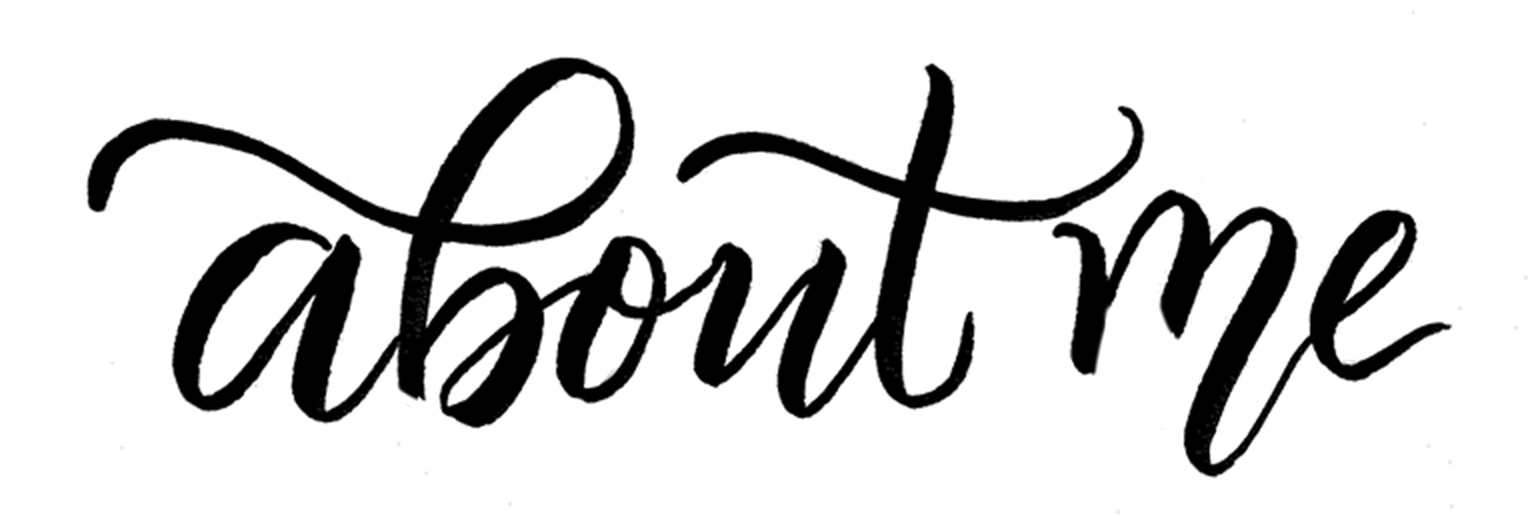 about me